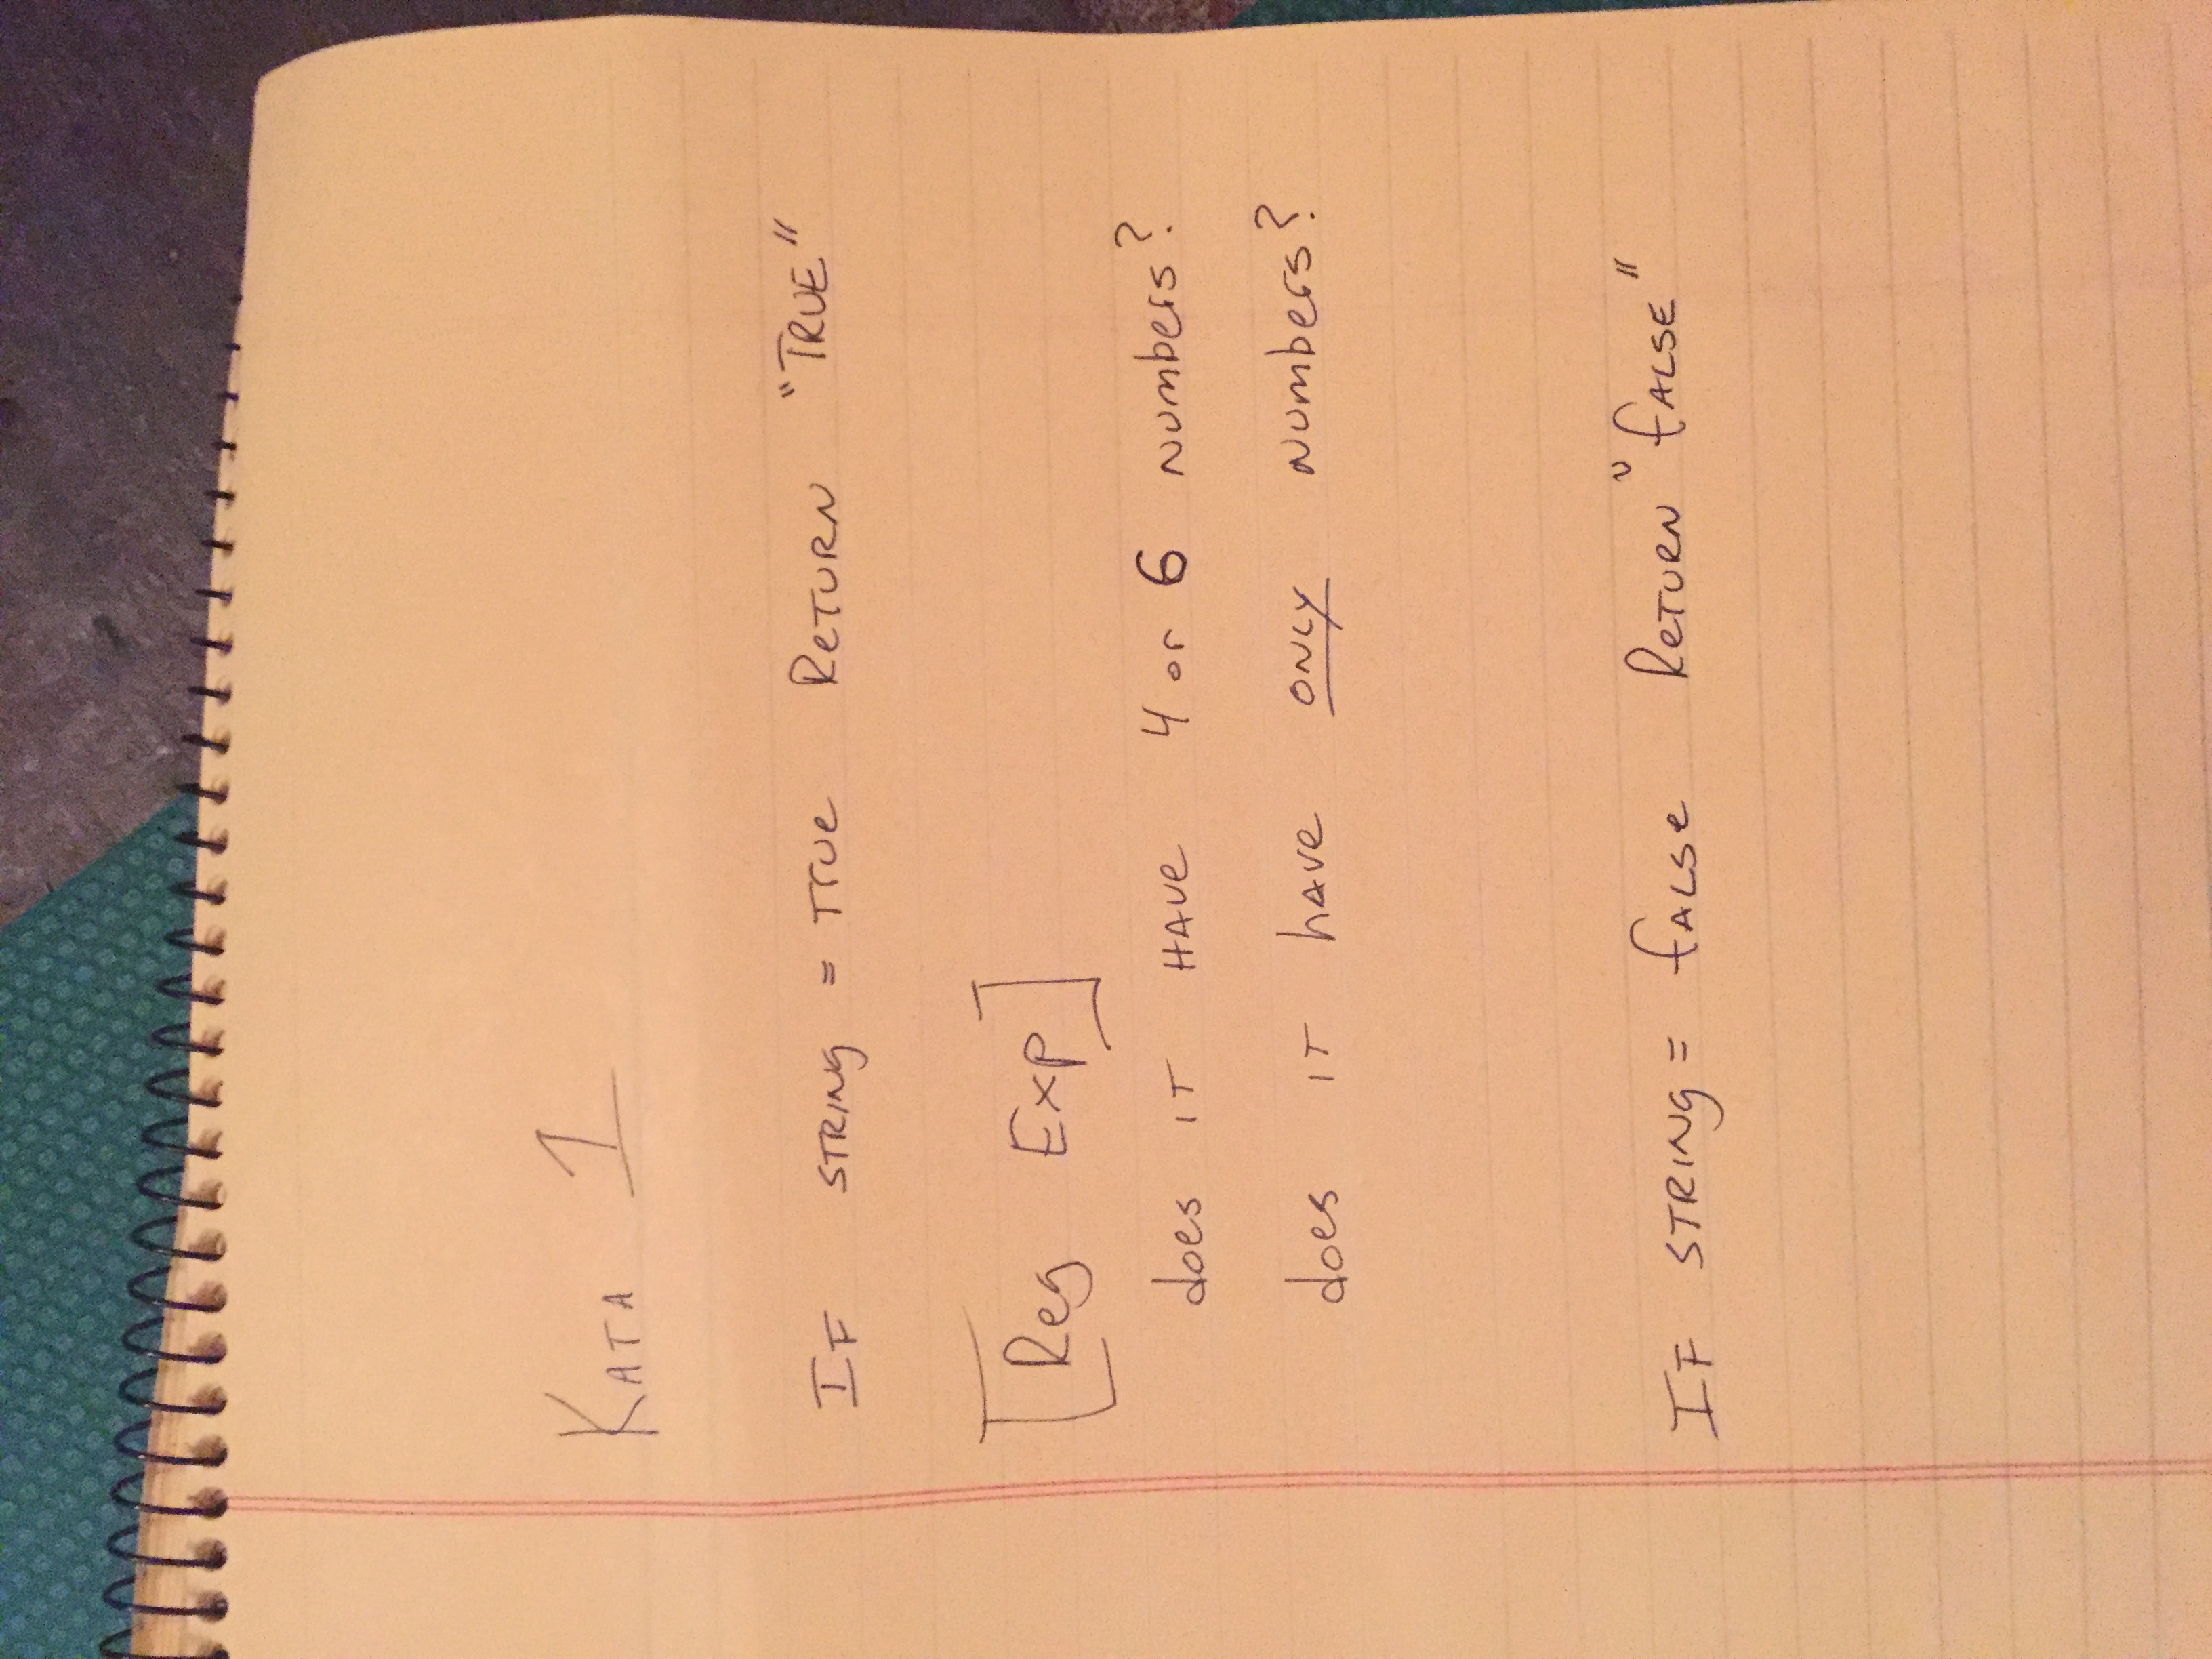 KATA 1
IF STRING = TRUE RETURN "TRUE"
[Reg Exp]
does IT HAVE 4 or 6 NUMbers?
does IT hAVe ONLY NUMbers?
IF STRING = fALSe RETURN "fALSE"